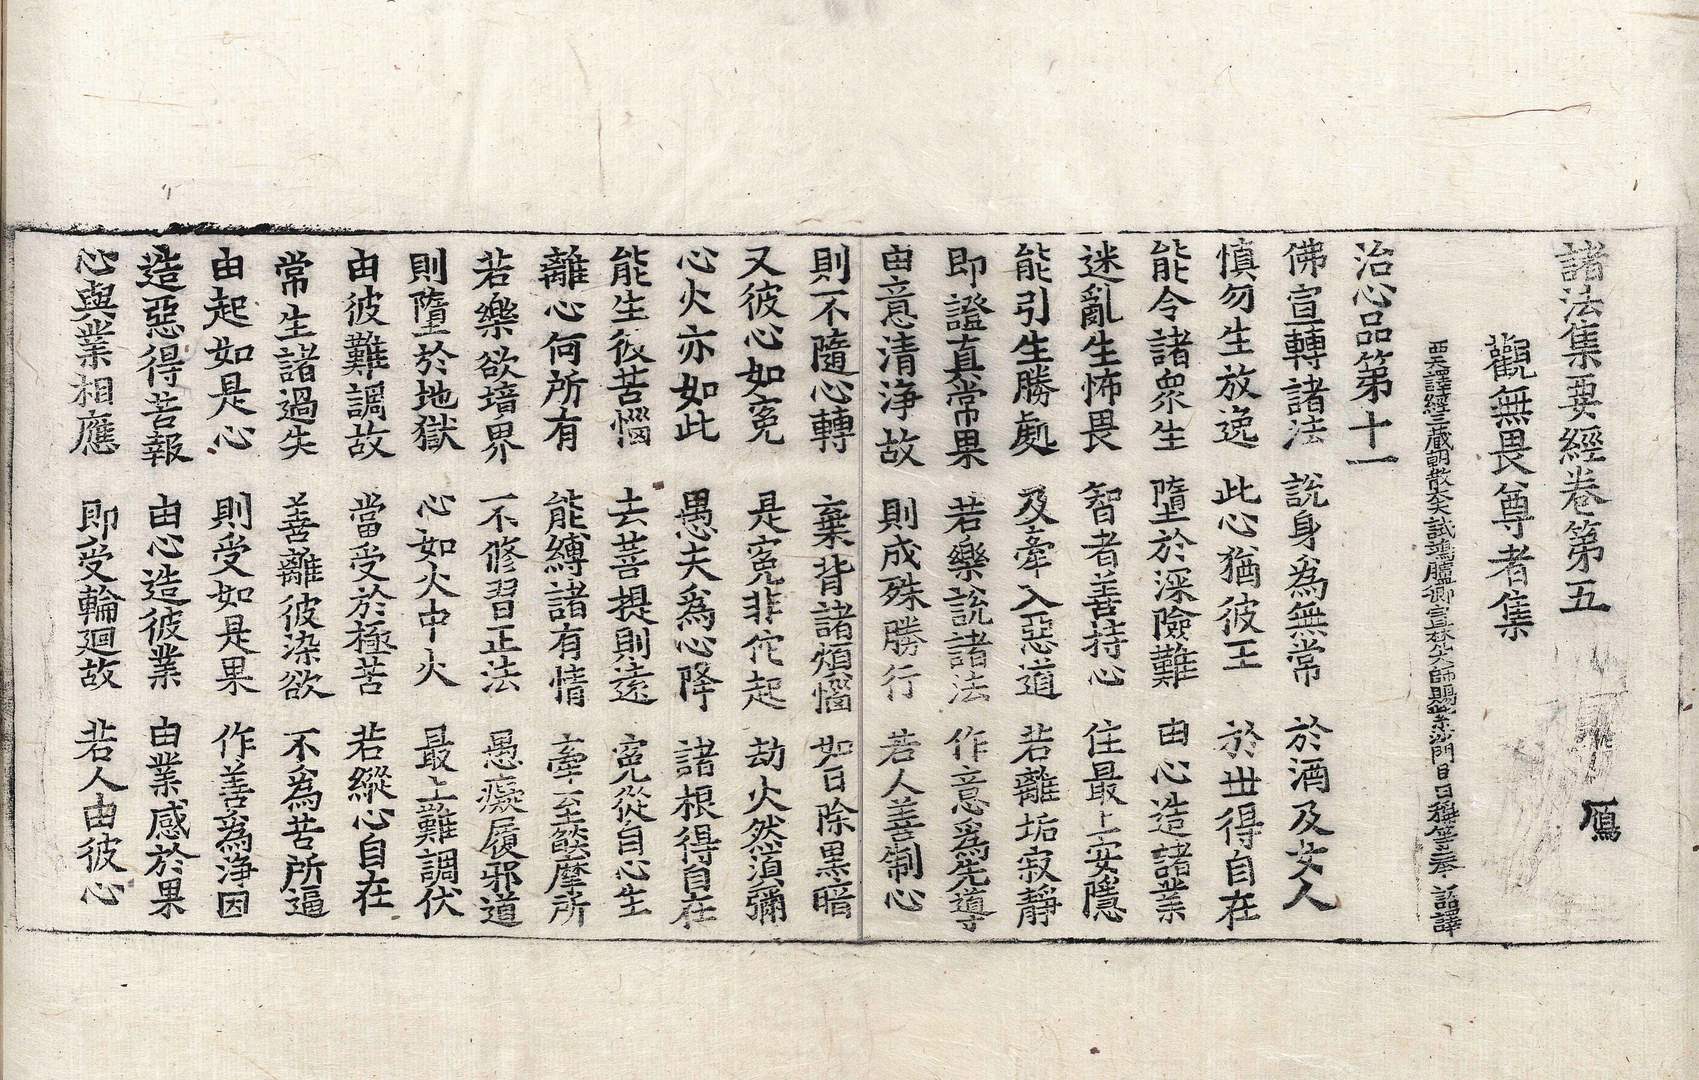 諸法集要經卷第五　鴈
觀無畏尊者集
西天譯經三藏朝散大夫試鴻臚卿宣梵大師賜紫沙門臣日稱等奉　詔譯
治心品第十一
佛宣轉諸法　說身為無常　於酒及女人
慎勿生放逸　此心猶彼王　於世得自在
能令諸衆生　墮於深險難　由心造諸業
迷亂生怖畏　智者善持心　住最上安隱
能引生勝處　及牽入惡道　若離垢寂靜
即證真常果　若樂說諸法　作意為先導
由意清淨故　則成殊勝行　若人善制心
則不隨心轉　棄背諸煩惱　如日除黑暗
又彼心如寃　是寃非佗起　劫火然湏彌
心火亦如此　愚夫為心降　諸根得自在
能生彼苦惱　去菩提則遠　寃從自心生
離心何所有　能縛諸有情　牽至燄摩所
若樂欲境界　不修習正法　愚癡履邪道
則墮於地獄　心如火中火　最上難調伏
由彼難調故　當受於極苦　若縱心自在
常生諸過失　善離彼染欲　不為苦所逼
由起如是心　則受如是果　作善為淨因
造惡得苦報　由心造彼業　由業感於果
心與業相應　即受輪迴故　若人由彼心